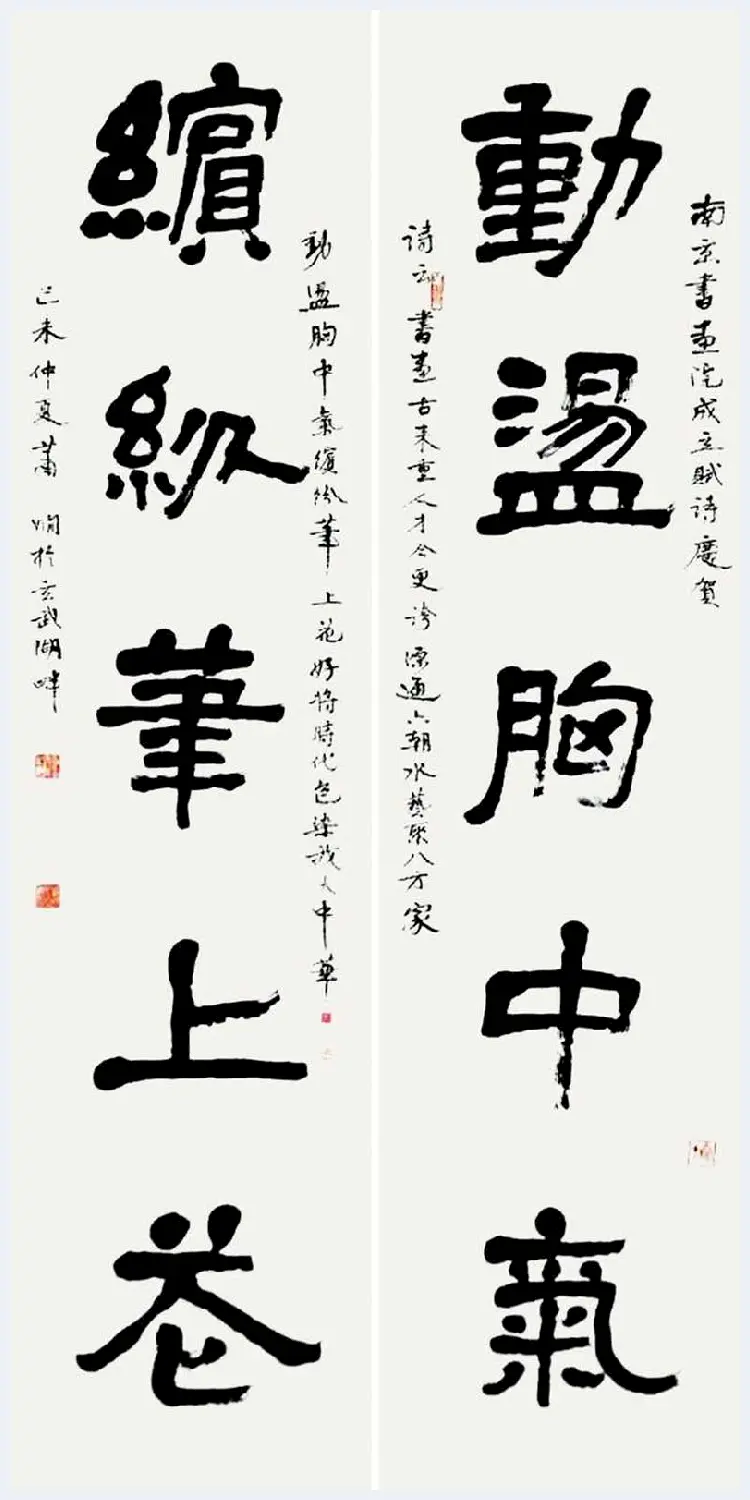 南京書畫院成立賦詩慶賀
動盪胸中氣
詩云書畫古來重人才今更誇源通六朝水藝聚八方家
動盪胸中氣繽紛筆上花好將時代色染我大中華
繽紛筆上花
己未仲夏蕭嫻於玄武湖畔